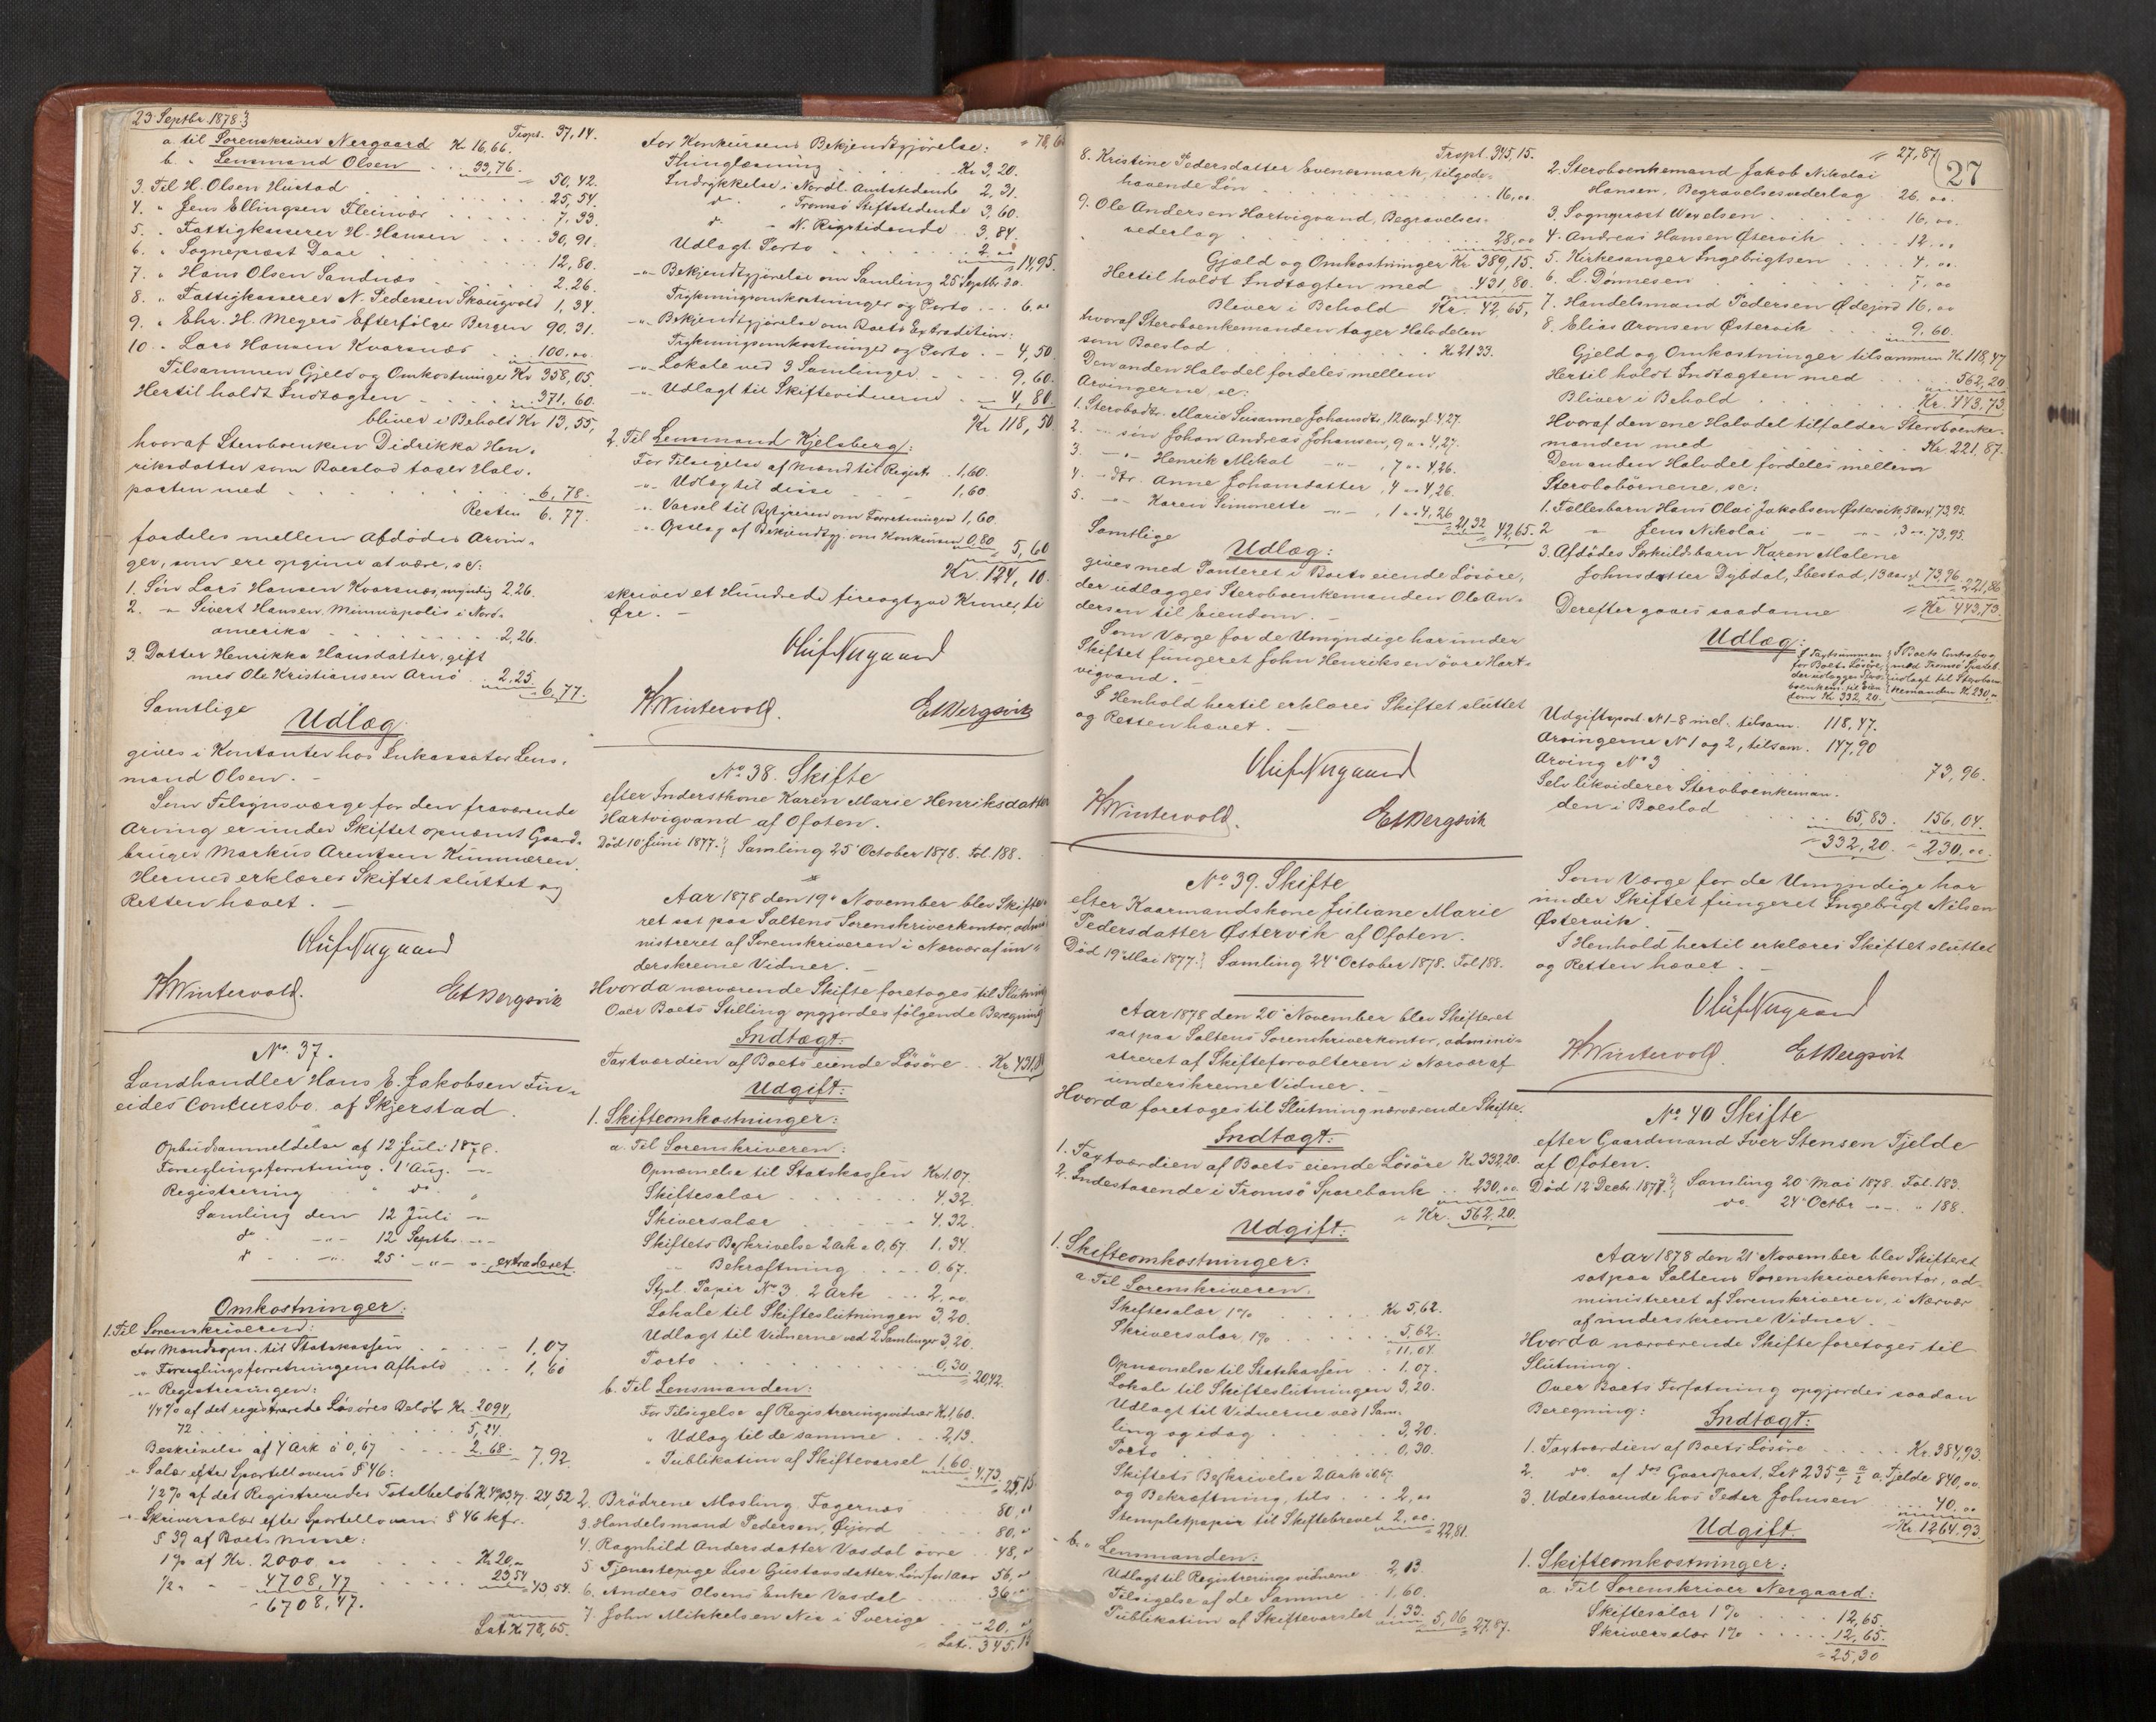 23 Septbr. 1878.
Trspt. 37,14.
a. til Sorenskriver Nergaard Kr 16,66.
b. " Lensmand Olsen . . 33,76.
50,42.
3. Til H. Olsen Hustad . . 25,54.
4. " Jens Ellingsen Fleinvær . . 7,33.
5. " Fattigkasserer H. Hansen . . 30,91.
6. " Sognepræst Daae . . 12,80.
7. " Hans Olsen Sandnæs . . 2,26.
8. " Fattigkasserer N. Pedersen Skaugvold 1,34.
9. " Ehr. H. Meyers Efterfølger Bergen 90,31.
10. " Lars Hansen Kvarsnæs . . 100,00.
Tilsammen Gjeld og Omkostninger Kr 358,05.
Hertil holdt Indtægten . . 371,60.
bliver i Behold Kr 13,55,
hvoraf Stervboenken Didrikka Hen-
riksdatter som Boeslod tager Halv-
parten med . . 6,78.
Resten 6,77.
fordeles mellem Afdødes Arvin-
ger, som ere opgivne at være, sc:
1. Søn Lars Hansen Kvarsnæs, myndig 2,26.
2. " Sivert Hansen, Minneapolis i Nord-
amerika . . 2,26.
3. Datter Henrikka Hansdatter, gift
med Ole Kristiansen Arnö . . 2,25. 6,77.
Samtlige
Udlæg
gives i Kontanter hos Inkassator Lens-
mand Olsen. –
Som Tilsynsværge for den fraværende
Arving er under Skiftet opnævnt Gaard-
bruger Markus Arentsen Kummeren.
Hermed erklæres Skiftet sluttet og
Retten hævet. –
Oluf Nergaard
H Wintervold. Et Bergsvik
No. 37.
Landhandler Hans E. Jakobsen Fin-
eides Concursbo af Skjerstad.
Opbudsanmeldelse af 12 Juli 1878.
Forseglingsforretning. 1' Aug. –"–
Registrering " do. "
Samling den 12 Juli –"–
do –"– 12 Septbr. –"–
do –"– 25' –"– extraderet.
Omkostninger:
1. Til Sorenskriveren:
For Mandsopn. til Statskassen . . 1,07
–"– Forseglingsforretningens Afhold . . 1,60
–"– Registreringen:
1/4 % af det registrerede Løsøres Beløb Kr. 2094,
72 . . 5,24.
Beskrivelse af 4 Ark á 0,67 . . 2,68. 7,92.
" Salær efter Sportellovens § 46:
1/2 % af det Registreredes Totalbeløb 24,52
" Skriversalær efter Sportellovens § 46 kfr.
§ 39 af Boets Masse:
1 % af Kr. 2000,00 . . Kr 20,"
1/2 " – 4708,47 . . 23,54 43,54.
6708,47.
Lat. Kr 78,65.
For Konkursens Bekjendtgjørelse: 78,6
Thinglæsning Kr 3,20.
Indrykkelse i Nordl. Amtstidende 2,31.
do " Tromsö Stiftstidende 3,60.
do " N. Rigstidende . . 3,84.
Udlagt Porto . . 2,00 14,95.
–"– Bekjendtgjørelse om Samling 25' Septbr. da.
Trykningsomkostninger og Porto . . 6,00
–"– Bekjendtgjørelse om Boets Extradition:
Trykningsomkostninger og Porto . . 4,50
–"– Lokale ved 3 Samlinger . . 9,60.
–"– Udlagt til Skiftevidnerne . . 4,80.
Kr 118,50
2. Til Lensmand Kjelsberg:
For Tilsigelse af Mænd til Registr. . . 1,60.
–"– Udlæg til disse . . 1,60.
–"– Varsel til Rekvirenten om Forretningen 1,60.
–"– Opslag af Bekjendtgj. om Konkursen 0,80 5,60
Kr. 124,10.
skriver et Hundrede fireogtyve Kroner, ti
Øre. –
Oluf Nergaard
H Wintervold. Et Bergsvik
No. 38. Skifte
efter Inderstkone Karen Marie Henriksdatter
Hartvigvand af Ofoten.
Død 10' Juni 1877. } Samling 25' October 1878. Fol. 188.
Aar 1878 den 19' November blev Skifte-
ret sat paa Saltens Sorenskriverkontor, admi-
nistreret af Sorenskriveren i Nærvær af un-
derskrevne Vidner. –
Hvorda nærværende Skifte foretoges til Slutning
Over Boets Stilling opgjordes følgende Beregning
Indtægt:
Taxtværdien af Boets eiende Løsøre . . Kr 431,80
Udgift:
1. Skifteomkostninger:
a. Til Sorenskriveren:
Opnævnelse til Statskassen Kr 1,07.
Skiftesalær . . 4,32.
Skriversalær . . 4,32.
Skiftets Beskrivelse 2 Ark a 0,67. 1,34.
Bekræftning . . 0,67.
Stpl. Papir No 3. 2 Ark . . 2,00.
Lokale til Skifteslutningen 3,20.
Udlagt til Vidnerne ved 2 Samlinger 3,20.
Porto . . 0,30. 20,42.
b. Til Lensmanden:
For Tilsigelse af Registreringsvidner Kr 1,60.
" Udlæg til de samme . . 2,13.
" Publikation af Skiftevarsel 1,00. 4,73. 25,15
2. Brödrene Mosling Fagernæs . . 80,"
3. Handelsmand Pedersen, Øijord . . 80,"
4. Ragnhild Andersdatter Vasdal övre . 48,"
5. Tjenestepige Lise Gustavsdatter, Løn for 1 Aar 56,"
6. Anders Olsens Enke Vasdal . . 36,"
7. John Mikkelsen Nia i Sverige . . 20,"
Lat. 345,15
Trspt. 345,15.
8. Kristine Pedersdatter Evenesmark, tilgode-
havende Løn . . 16,00.
9. Ole Andersen Hartvigvand, Begravelses-
vederlag . . 28,00
Gjæld og Omkostninger Kr. 389,15.
Hertil holdt Indtægten med . . 431,80.
Bliver i Behold Kr. 42,65,
hvoraf Stervboenkemanden tager Halvdelen
som Boeslod . . Kr 21 33.
Den anden Halvdel fordeles mellem
Arvingerne, sc:
1. Stervbodtr. Marie Susanne Johansdtr., 12 Aar gl. 4,27.
2. –"– søn Johan Andreas Johansen, 9 " " 4,27.
3. –"– Henrik Mikal –"–, 7 " " 4,26.
4. –"– dtr. Anne Johansdatter, 4 " " 4,26.
5. –"– Karen Simmette –"–, 1 " " 4,26. 21,32 42,65.
Samtlige
Udlæg:
gives med Panteret i Boets eiende Løsøre,
der udlægges Stervboenkemanden Ole An-
dersen til Eiendom. –
Som Værge for de Umyndige har under
Skiftet fungeret John Henriksen övre Hart-
vigvand. –
I Henhold hertil erklæres Skiftet sluttet
og Retten hævet. –
Oluf Nergaard
H Wintervold. Et Bergsvik
No. 39. Skifte
efter Kaarmandskone Juliane Marie
Pedersdatter Østervik af Ofoten.
Død 19' Mai 1877. } Samling 24' October 1878. Fol 188.
Aar 1878 den 20' November blev Skifteret
sat paa Saltens Sorenskriverkontor, admini-
streret af Skifteforvalteren i Nærvær af
underskrevne Vidner. –
Hvorda foretoges til Slutning nærværende Skifte.
Indtægt:
1. Taxtværdien af Boets eiende Løsøre Kr 332,20.
2. Indestaaende i Tromsö Sparebank . . 230,00.
Kr. 562,20.
Udgift:
1. Skifteomkostninger:
a. Til Sorenskriveren.
Skiftesalær 1 % . . Kr 5,62.
Skriversalær 1 % . . 5,62.
11,04.
Opnævnelse til Statskassen . . 1,07.
Lokale til Skifteslutningen 3,20.
Udlagt til Vidnerne ved 1 Sam-
ling og idag . . 3,20.
Porto . . 0,30.
Skiftets Beskrivelse 2 Ark a 0,67.
og Bekræftning, tils. . . 2,00
Stempletpapir til Skiftebrevet 2,00. 22,81.
b. " Lensmanden:
Udlagt til Registreringsvidnerne . . 2,13.
Tilsigelse af de Samme . . 1,60.
Publikation af Skiftevarslet 1,33. 5,06 27,87.
27,87.
27
2. Stervboenkemand Jakob Nikolai
Hansen, Begravelsesvederlag . 26,00.
3. Sognepræst Wexelsen . . 16,00.
4. Andreas Hansen Østervik . . 12,00
5. Kirkesanger Ingebrigtsen . . 4,00.
6. L. Dønnesen . . 7,00
7. Handelsmand Pedersen Ødejord 16,00
8. Elias Aronsen Østervik . . 9,60.
Gjeld og Omkostninger tilsammen Kr 118,47
Hertil holdt Indtægten med . . 562,20
Bliver i Behold . . Kr. 443,73.
Hvoraf den ene Halvdel tilfalder Stervboenke-
manden med . . Kr 221,87.
Den anden Halvdel fordeles mellem
Stervbobörnene, sc:
1. Fællesbarn Hans Olai Jakobsen Østervik, 5 Aar, 73,95.
2 " Jens Nikolai –"– –"–, 3 " " 73,95.
3. Afdødes Særkuldsbarn Karen Malene
Johnsdatter Dybdal, Ibestad, 13 Aar gl. 73,96. 221,86
Derefter gaves saadanne Kr 443,73.
Udlæg:
I Taxtsummen
for Boets Løsøre,
der udlægges Stervbo-
boenkem. til Eien-
dom Kr 332,20.
I Boets Contrabog
med Tromsö Spareb.
udlagt til Stervboen-
kemanden Kr 230,"
Udgiftspost. N 1-8 incl. tilsam. 118,47.
Arvingerne N 1 og 2, tilsam. 147,90
Arving No 3 . . 73,96.
Selv likviderer Stervboenkeman-
den i Boeslod . . 65,83. 156,04.
332,20. 230,00.
Som Værge for de Umyndige har
under Skiftet fungeret Ingebrigt Nilsen
Østervik.
I Henhold hertil erklæres Skiftet sluttet
og Retten hævet. –
Oluf Nergaard
H Wintervold Et Bergsvik
No. 40 Skifte
efter Gaardmand Iver Stensen Fjelde
af Ofoten.
Død 12' Decbr. 1877. } Samling 20' Mai 1878. Fol. 183.
do. 24' Octbr –"– " 188.
Aar 1878 den 21' November blev Skifteret
sat paa Saltens Sorenskriverkontor, ad-
ministreret af Sorenskriveren, i Nærvær
af underskrevne Vidner. –
Hvorda nærværende Skifte foretoges til
Slutning.
Over Boets Forfatning opgjordes saadan
Beregning:
Indtægt:
1. Taxtværdien af Boets Løsøre . . Kr. 384,93.
2. do. af do Gaardpart, L.N 235 a/1 a/2 a. Fjelde 840,00
3. Udestaaende hos Peder Johnsen . . 40,00
Kr. 1264,93.
Udgift.
1. Skifteomkostninger:
a. Til Sorenskriver Nergaard:
Skiftesalær 1 % . . 12,65.
Skriversalær 1 % . . 12,65.
25,30